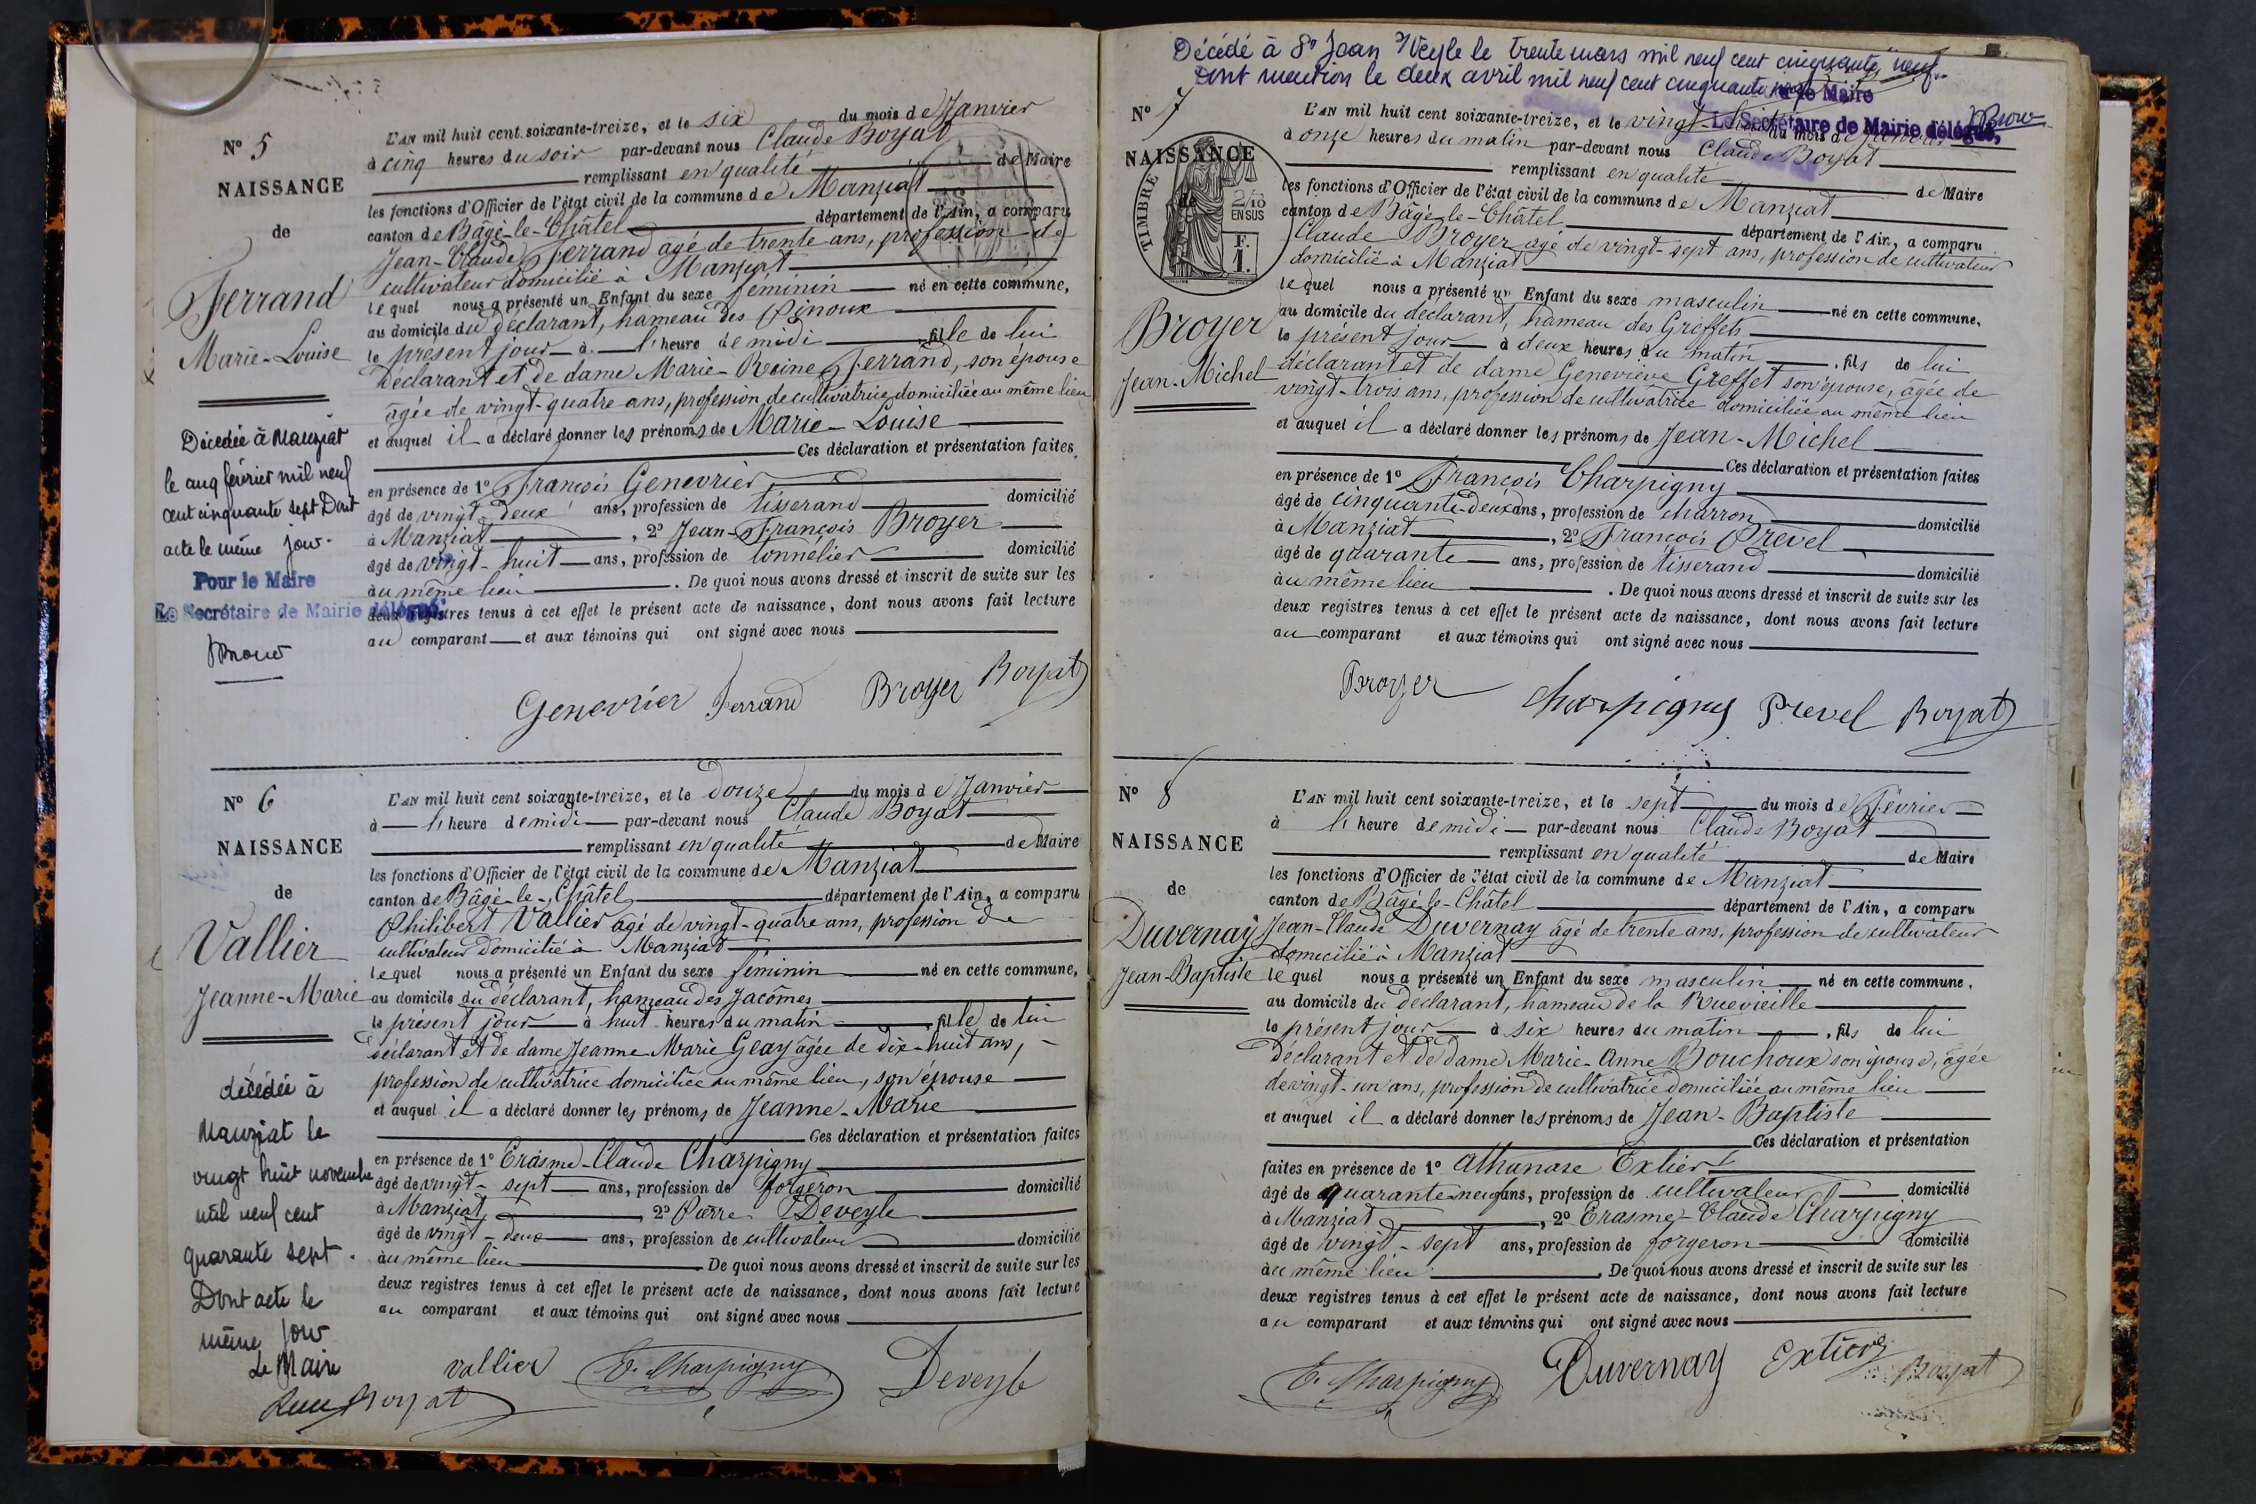 N° 5
NAISSANCE
de
Ferrand
Marie-Louise
Décédée à Manziat
le cinq février mil neuf
cent cinquante sept Dont
acte le même jour.
Pour le Maire
Le Secrétaire de Mairie délégué,
L'AN mil huit cent soixante-treize, et le six du mois de Janvier
à cinq heures du soir par-devant nous Claude Boyat
remplissant en qualité de Maire
les fonctions d'Officier de l'état civil de la commune de Manziat
canton de Bâgé-le-Châtel département de l'Ain, a comparu
Jean-Claude Ferrand âgé de trente ans, profession de
cultivateur domicilié à Manziat
lequel nous a présenté un Enfant du sexe féminin né en cette commune,
au domicile du déclarant, hameau des Pinoux
le présent jour à l'heure de midi fille de lui
déclarant et de dame Marie-Reine Ferrand, son épouse
âgée de vingt-quatre ans, profession de cultivatrice domiciliée au même lieu
et auquel il a déclaré donner les prénoms de Marie-Louise
Ces déclaration et présentation faites
en présence de 1° François Genevrier
âgé de vingt-deux ans, profession de tisserand domicilié
à Manziat, 2° Jean-François Broyer
âgé de vingt-huit ans, profession de tonnelier domicilié
au même lieu. De quoi nous avons dressé et inscrit de suite sur les
deux registres tenus à cet effet le présent acte de naissance, dont nous avons fait lecture
au comparant et aux témoins qui ont signé avec nous
Genevrier Ferrand Broyer Boyat
N° 6
NAISSANCE
de
Vallier
Jeanne-Marie
décédée à
Manziat le
vingt huit novembre
mil neuf cent
quarante sept.
Dont acte le
même jour
Le Maire
Boyat
L'AN mil huit cent soixante-treize, et le douze du mois de Janvier
à l'heure de midi par-devant nous Claude Boyat
remplissant en qualité de Maire
les fonctions d'Officier de l'état civil de la commune de Manziat
canton de Bâgé-le-Châtel département de l'Ain, a comparu
Philibert Vallier âgé de vingt-quatre ans, profession de
cultivateur domicilié à Manziat
lequel nous a présenté un Enfant du sexe féminin né en cette commune,
au domicile du déclarant, hameau des Jacômes
le présent jour à huit heures du matin, fille de lui
déclarant et de dame Jeanne Marie Geay âgée de dix-huit ans,
profession de cultivatrice domiciliée au même lieu, son épouse
et auquel il a déclaré donner les prénoms de Jeanne-Marie
Ces déclaration et présentation faites
en présence de 1° Erasme-Claude Charpigny
âgé de vingt-sept ans, profession de forgeron domicilié
à Manziat, 2° Pierre Deveyle
âgé de vingt-deux ans, profession de cultivateur domicilié
au même lieu. De quoi nous avons dressé et inscrit de suite sur les
deux registres tenus à cet effet le présent acte de naissance, dont nous avons fait lecture
au comparant et aux témoins qui ont signé avec nous
Vallier E. Charpigny Deveyle
Décédé à St Jean s/Veyle le trente mars mil neuf cent cinquante neuf.
Dont mention le deux avril mil neuf cent cinquante neuf
le Maire
Le Secrétaire de Mairie délégué,
N° 7
NAISSANCE
de
TIMBRE
2/10
EN SUS
F.
1.
Broyer
Jean-Michel
L'AN mil huit cent soixante-treize, et le vingt- du mois de Janvier
à onze heures du matin par-devant nous Claude Boyat
remplissant en qualité de Maire
les fonctions d'Officier de l'état civil de la commune de Manziat
canton de Bâgé-le-Châtel département de l'Ain, a comparu
Claude Broyer âgé de vingt-sept ans, profession de cultivateur
domicilié à Manziat
lequel nous a présenté un Enfant du sexe masculin né en cette commune,
au domicile du déclarant, hameau des Greffets
le présent jour à deux heures du matin, fils de lui
déclarant et de dame Geneviève Greffet son épouse, âgée de
vingt-trois ans, profession de cultivatrice domiciliée au même lieu
et auquel il a déclaré donner les prénoms de Jean-Michel
Ces déclaration et présentation faites
en présence de 1° François Charpigny
âgé de cinquante-deux ans, profession de charron domicilié
à Manziat, 2° François Prevel
âgé de quarante ans, profession de tisserand domicilié
au même lieu. De quoi nous avons dressé et inscrit de suite sur les
deux registres tenus à cet effet le présent acte de naissance, dont nous avons fait lecture
au comparant et aux témoins qui ont signé avec nous
Broyer Charpigny Prevel Boyat
N° 8
NAISSANCE
de
Duvernay
Jean-Baptiste
L'AN mil huit cent soixante-treize, et le sept du mois de Février
à l'heure de midi par-devant nous Claude Boyat
remplissant en qualité de Maire
les fonctions d'Officier de l'état civil de la commune de Manziat
canton de Bâgé-le-Châtel département de l'Ain, a comparu
Jean-Claude Duvernay âgé de trente ans, profession de cultivateur
domicilié à Manziat
lequel nous a présenté un Enfant du sexe masculin né en cette commune,
au domicile du déclarant, hameau de la Ruevieille
le présent jour à six heures du matin, fils de lui
déclarant et de dame Marie-Anne Bouchoux son épouse, âgée
de vingt-un ans, profession de cultivatrice domiciliée au même lieu
et auquel il a déclaré donner les prénoms de Jean-Baptiste
Ces déclaration et présentation
faites en présence de 1° Athanase Extier
âgé de quarante-neuf ans, profession de cultivateur domicilié
à Manziat, 2° Erasme-Claude Charpigny
âgé de vingt-sept ans, profession de forgeron domicilié
au même lieu. De quoi nous avons dressé et inscrit de suite sur les
deux registres tenus à cet effet le présent acte de naissance, dont nous avons fait lecture
au comparant et aux témoins qui ont signé avec nous
E. Charpigny Duvernay Extier Boyat